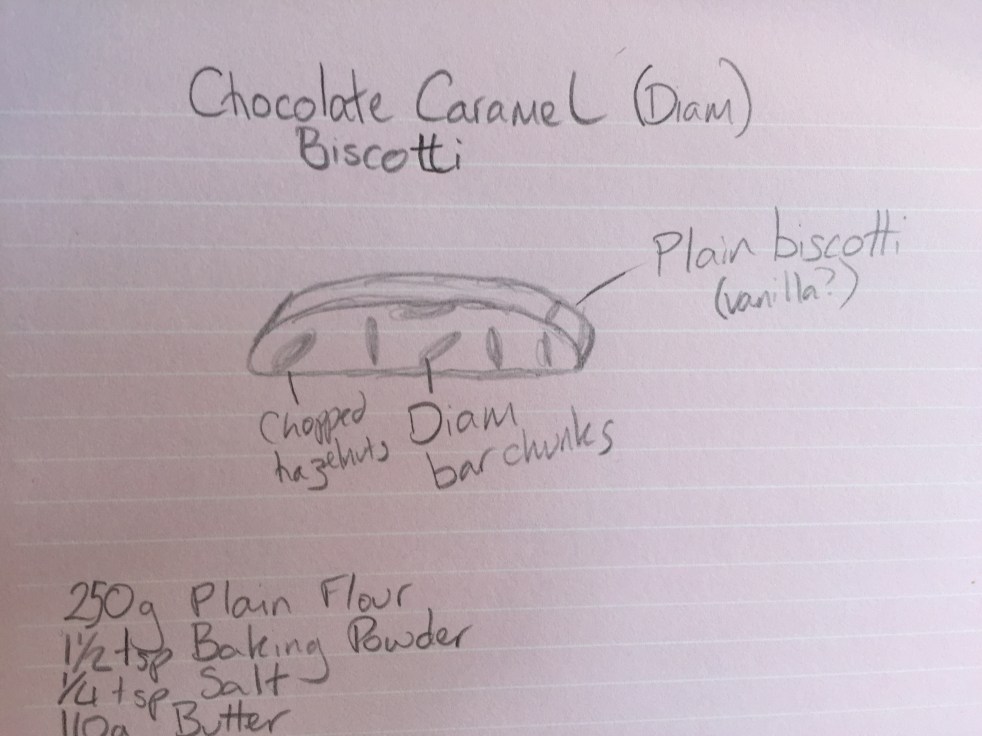 Chocolate Caramel (Diam)
Biscotti
Plain biscotti
(vanilla?)
Chopped
hazelnuts
Diam
bar chunks
250g Plain Flour
1 1/2 tsp Baking Powder
1/4 tsp Salt
110g Butter